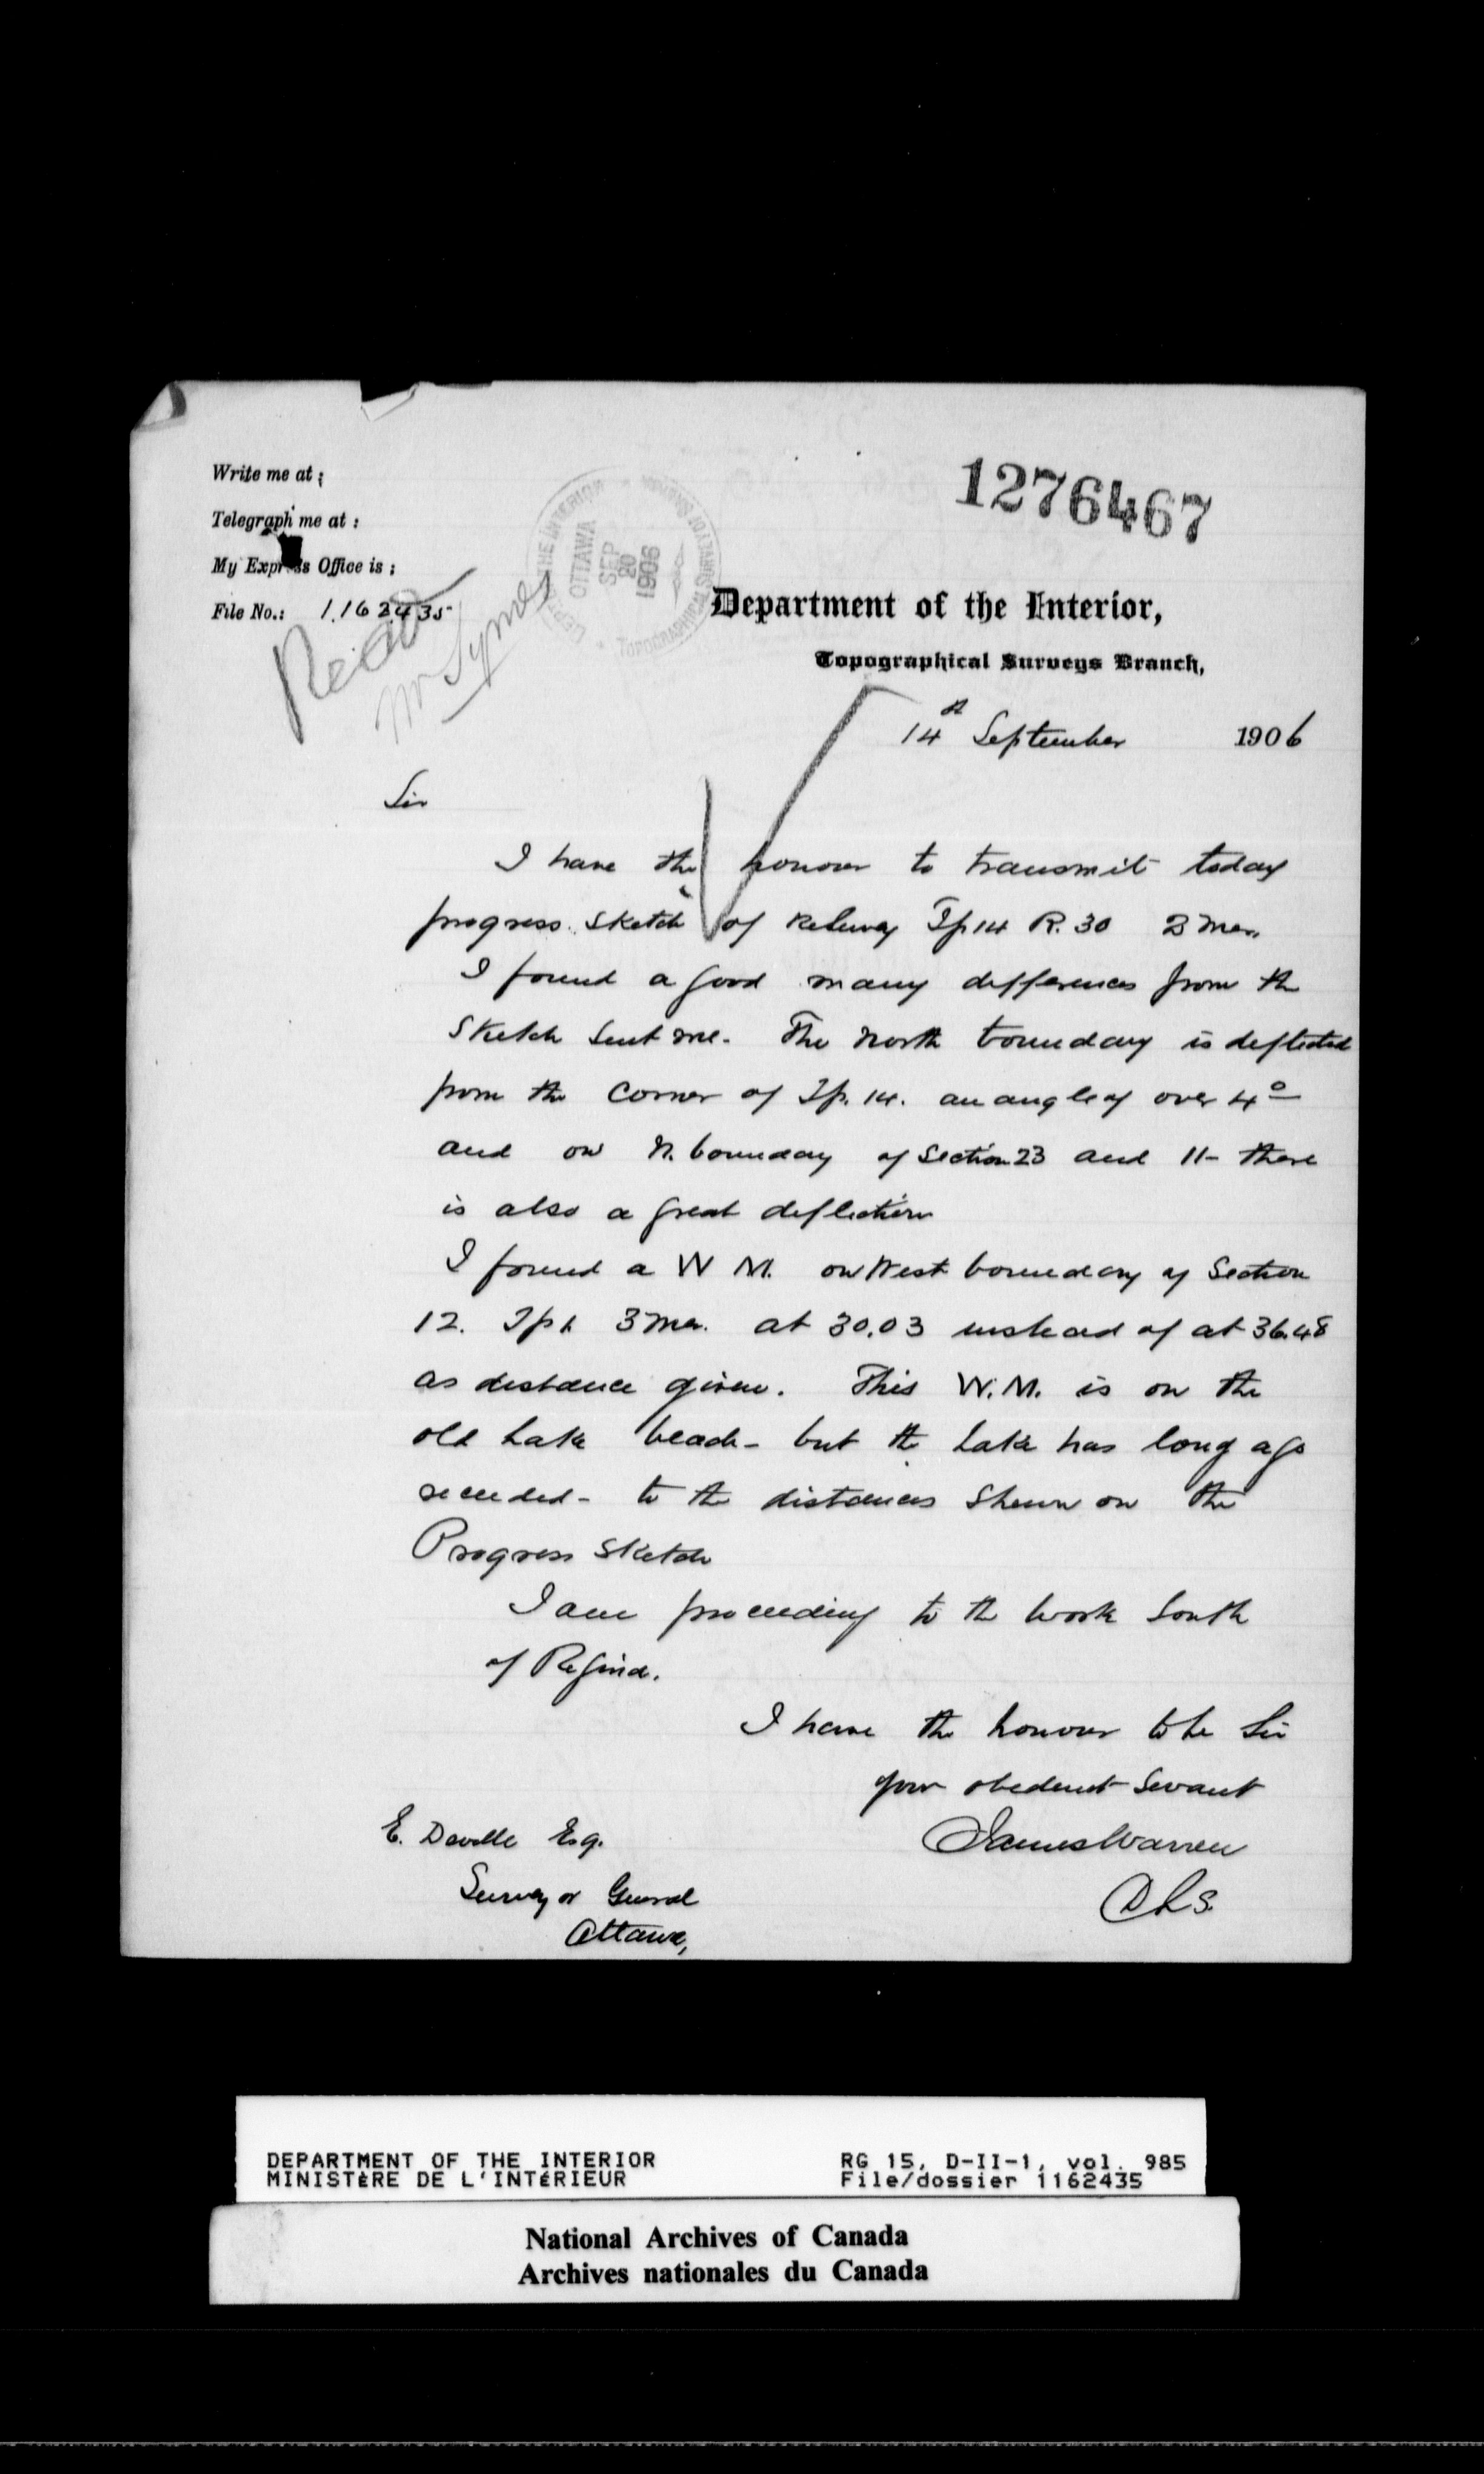 Write me at :
Telegraph me at :
My Express Office is :
File No.: 1.162435
Read
Mr Symes
DEPT. OF THE INTERIOR
OTTAWA
SEP
20
1906
TOPOGRAPHICAL SURVEYS BRANCH
1276467
Department of the Interior,
Topographical Surveys Branch,
14th September 1906
Sir
I have the honour to transmit today
progress sketch of Tp 14 R. 30 2 Mer.
I found a good many differences from the
Sketch sent me. The North boundary is deflected
from the Corner of Tp. 14. an angle of over 4°
and on N. boundary of Section 23 and 11 - there
is also a great deflection
I found a W M. on West boundary of Section
12. Tp 1. 3 Mer. at 30.03 instead of at 36.48
as distance given. This W.M. is on the
old Lake beach - but the Lake has long ago
receeded - to the distances shewn on the
Progress Sketch
I am proceeding to the work South
of Regina.
I have the honour to be Sir
your obedient Servant
James Warren
D L S.
E. Deville Esq.
Surveyor General
Ottawa,
DEPARTMENT OF THE INTERIOR RG 15, D-II-1, vol. 985
MINISTÈRE DE L'INTÉRIEUR File/dossier 1162435
National Archives of Canada
Archives nationales du Canada